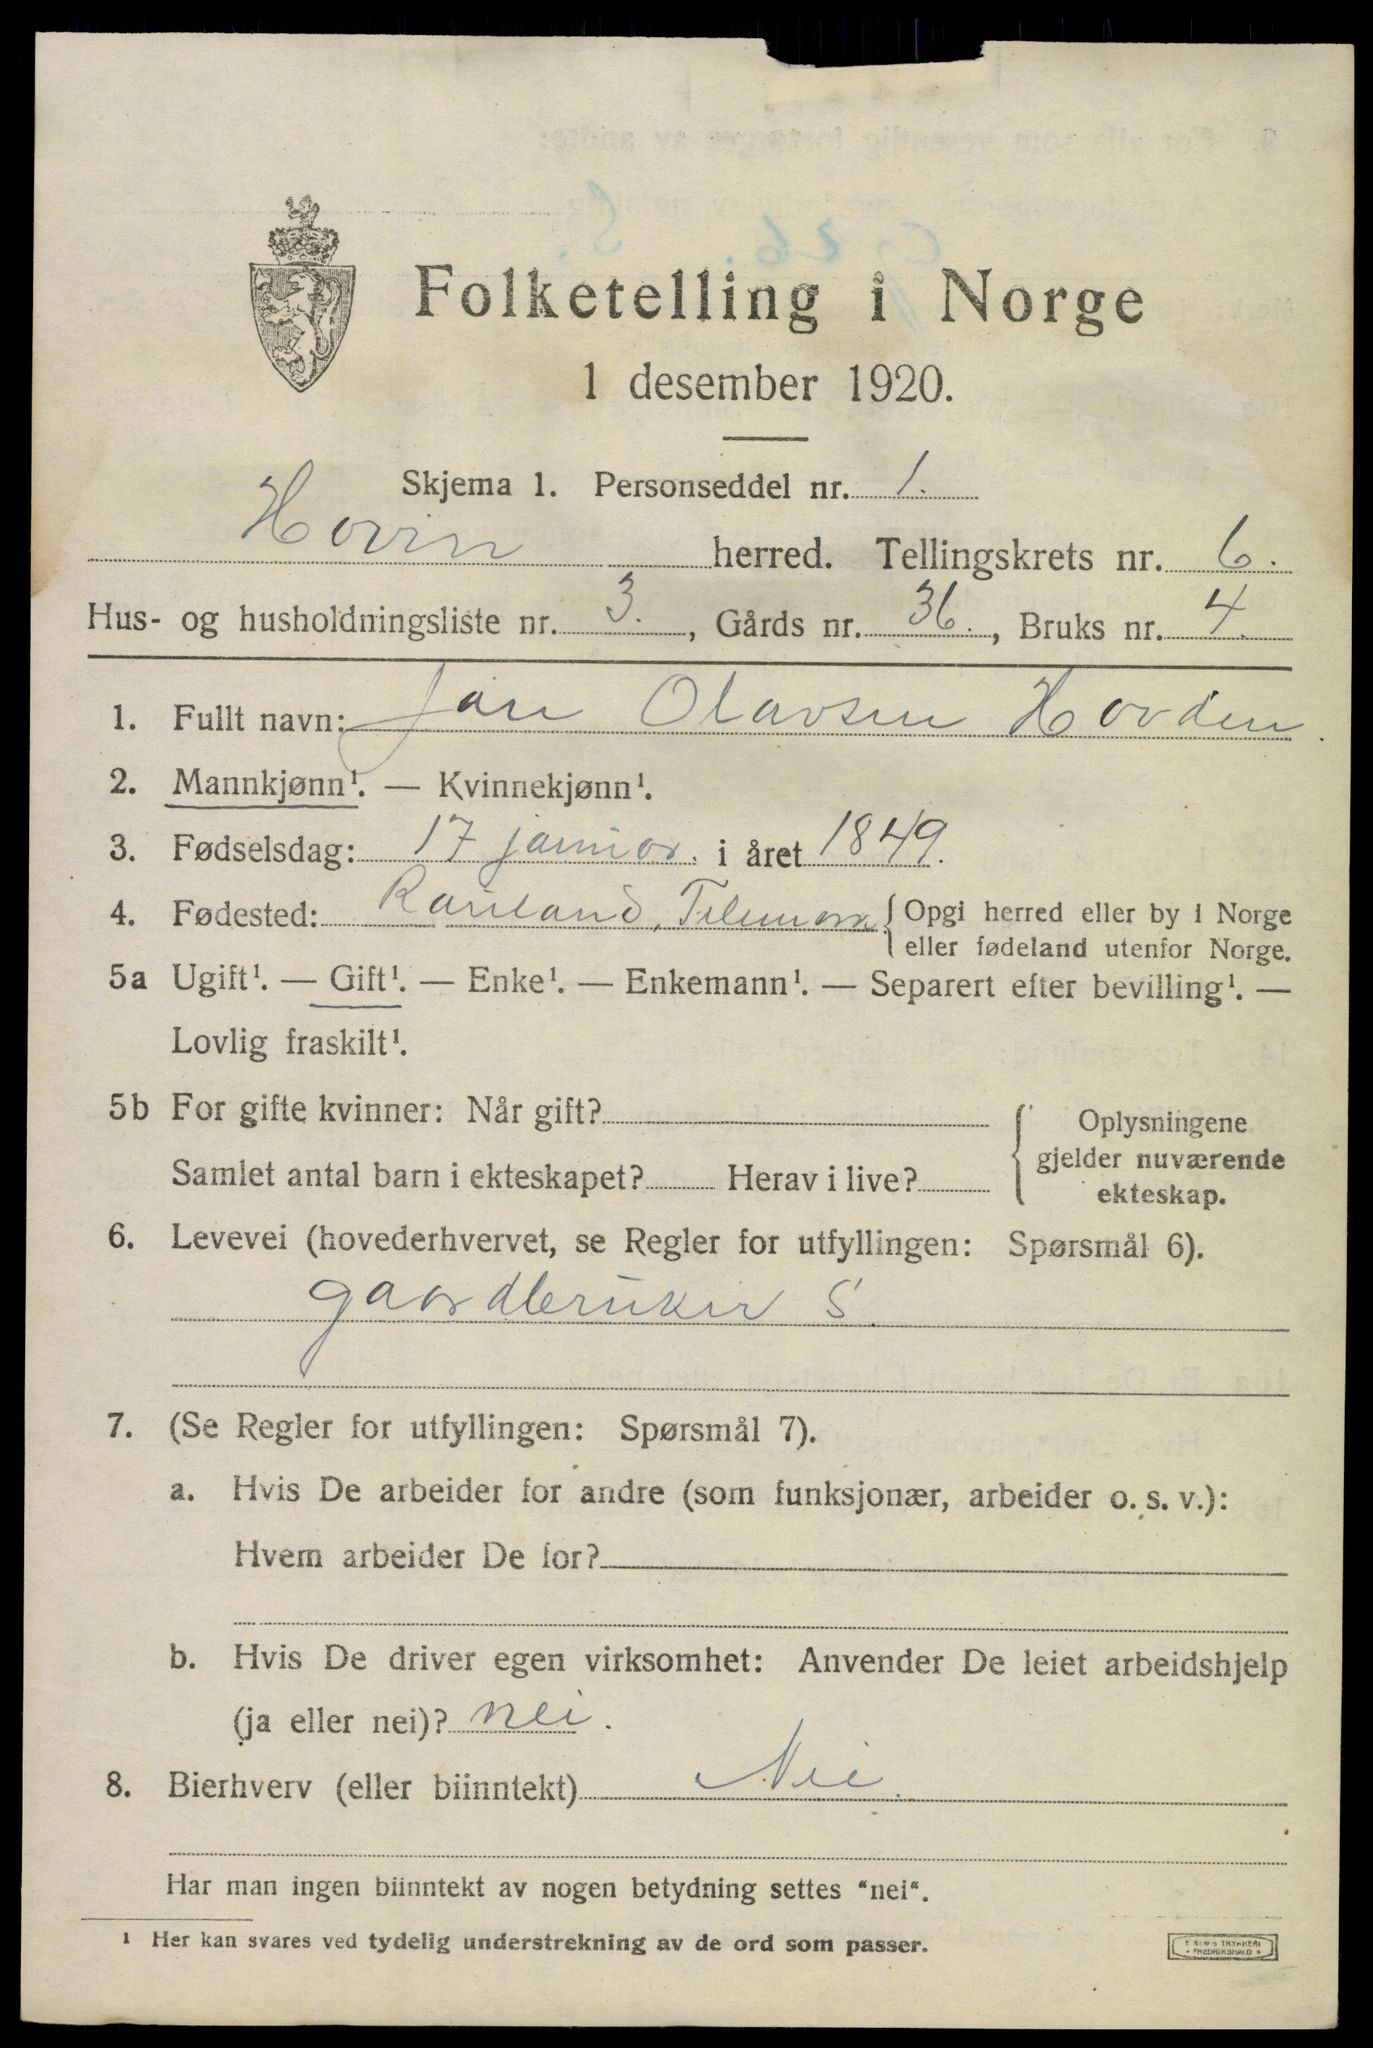 Folketelling i Norge
1 desember 1920.
Skjema 1. Personseddel nr. 1.
Hovin herred. Tellingskrets nr. 6.
Hus- og husholdningsliste nr. 3., Gårds nr. 36., Bruks nr. 4.
1. Fullt navn: Jon Olavsen Hovden.
2. Mannkjønn¹. — Kvinnekjønn¹.
3. Fødselsdag: 17 januar. i året 1849.
4. Fødested: Rauland, Telemark { Opgi herred eller by i Norge
eller fødeland utenfor Norge.
5a Ugift¹. — Gift¹. — Enke¹. — Enkemann¹. — Separert efter bevilling¹. —
Lovlig fraskilt¹.
5b For gifte kvinner: Når gift?
Samlet antal barn i ekteskapet? Herav i live?
Oplysningene
gjelder nuværende
ekteskap.
6. Levevei (hovederhvervet, se Regler for utfyllingen: Spørsmål 6).
gaardbruker S
7. (Se Regler for utfyllingen: Spørsmål 7).
a. Hvis De arbeider for andre (som funksjonær, arbeider o. s. v.):
Hvem arbeider De for?
b. Hvis De driver egen virksomhet: Anvender De leiet arbeidshjelp
(ja eller nei)? nei.
8. Bierhverv (eller biinntekt) Nei.
Har man ingen biinntekt av nogen betydning settes "nei".
1 Her kan svares ved tydelig understrekning av de ord som passer.